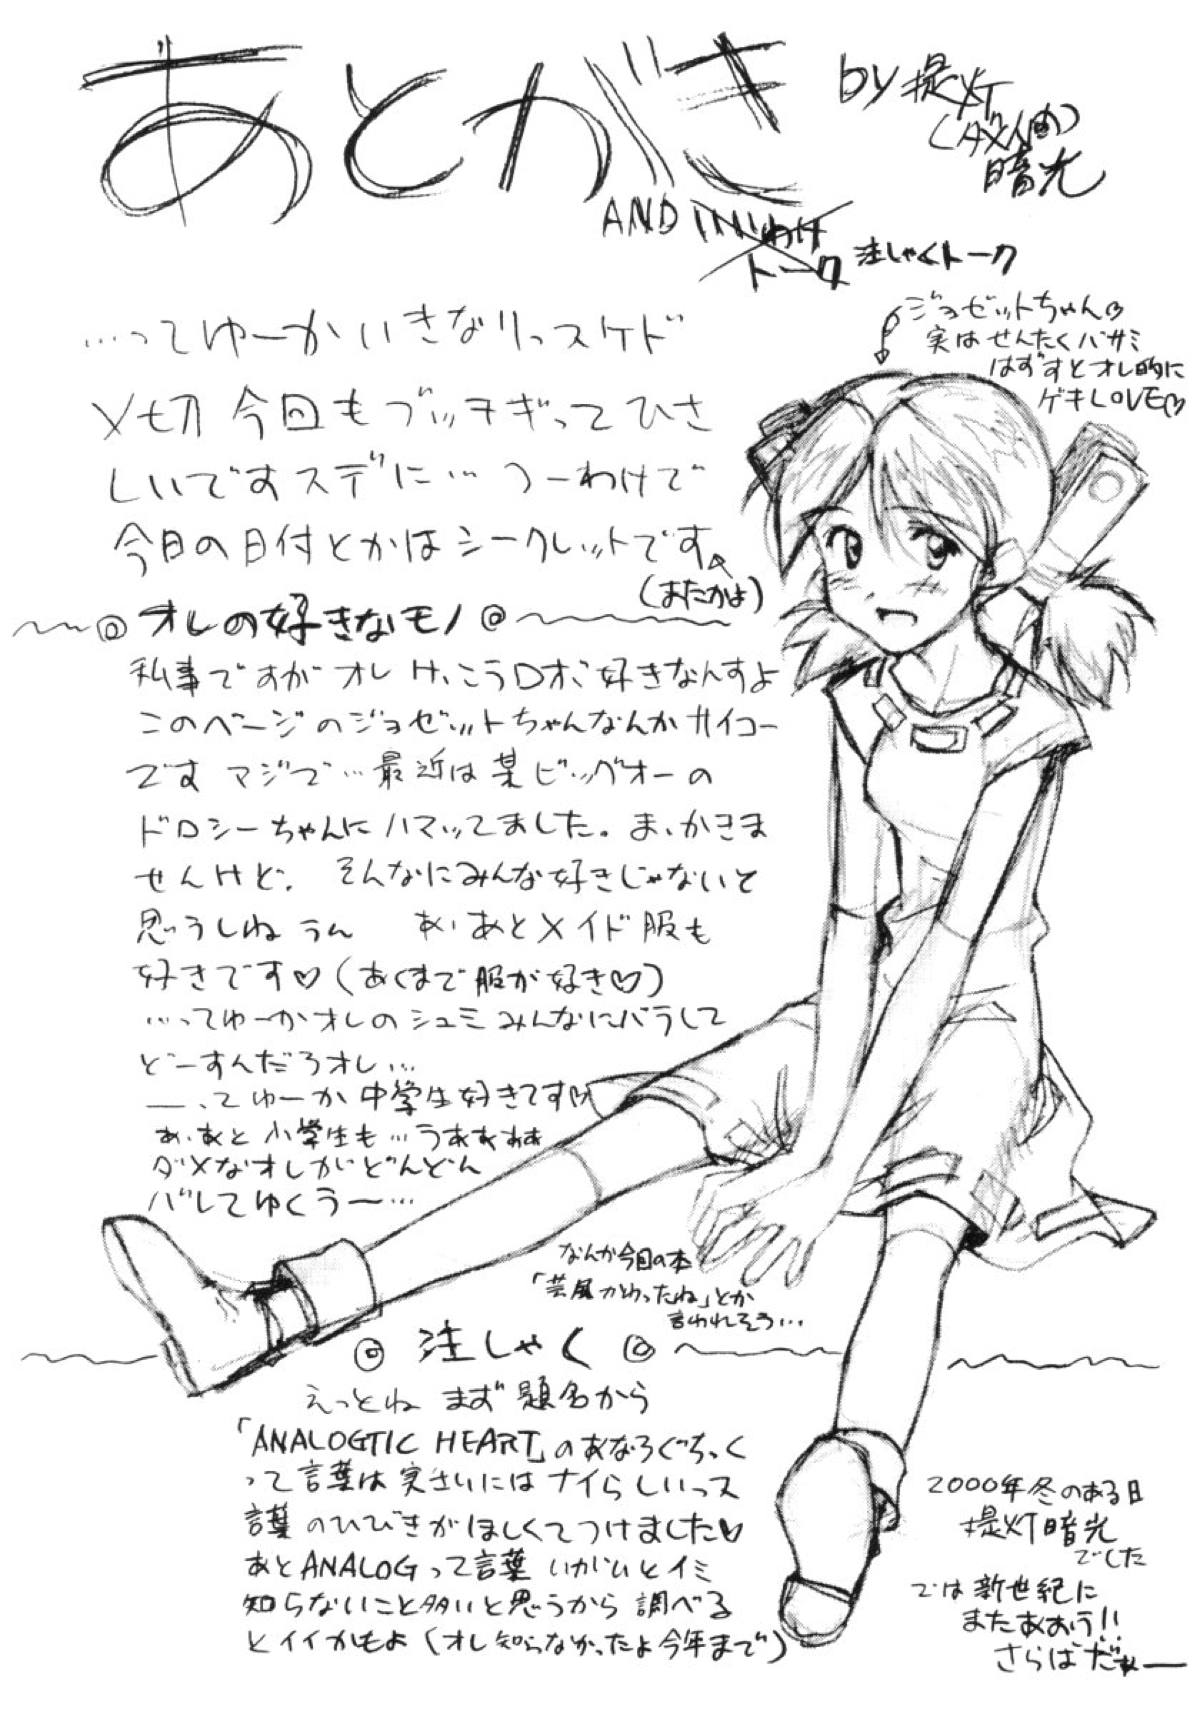 あとがき
by 提灯
(ダメ人間)
暗光
AND いいわけ
トーク 注しゃくトーク
ジョゼットちゃん♡
実はせんたくバサミ
はずすとオレ的に
ゲキLOVE♡
…ってゆーかいきなりっスケド
〆切今回もブッチギってひさ
しいですスデに… つーわけで
今日の日付とかはシークレットです
(またかよ)
◎オレの好きなモノ◎
私事ですがオレけっこうロボ好きなんすよ
このページのジョゼットちゃんなんかサイコー
です マジで…最近は某ビッグオーの
ドロシーちゃんにハマッてました。ま、かきま
せんけど。 そんなにみんな好きじゃないと
思うしね うん あ、あとメイド服も
好きです♡(あくまで服が好き♡)
…ってゆーかオレのシュミみんなにバラして
どーすんだろオレ…
―ってゆーか中学生好きです♡
あ、あと小学生も…うああああ
ダメなオレがどんどん
バレてゆくうー…
なんか今回の本
「芸風かわったね」とか
言われそう…
◎ 注しゃく ◎
えっとね まず題名から
「ANALOGTIC HEART」のあなろぐちっく
って言葉は実さいにはナイらしいっス
言葉のひびきがほしくてつけました♡
あとANALOGって言葉 いがいとイミ
知らないこと多いと思うから調べる
とイイかもよ(オレ知らなかったよ今年まで)
2000年冬のある日
提灯暗光
でした
では新世紀に
またあおう!!
さらばだぁー